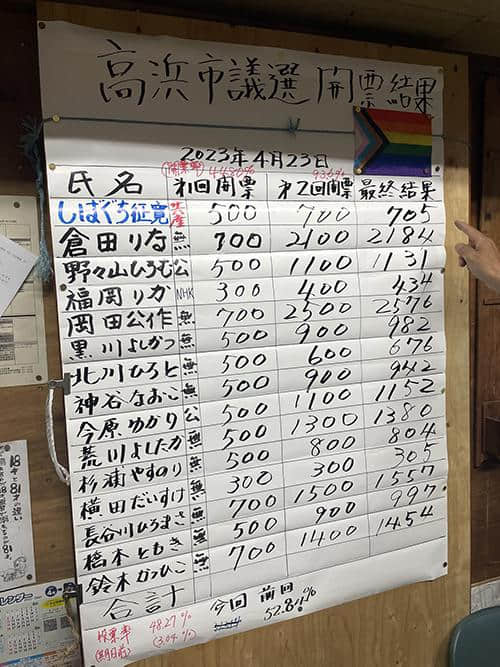 高浜市議選 開票結果
2023年4月23日
開票率 44.80% 93.6%
氏名 第1回開票 第2回開票 最終結果
しばぐち征寛 共産 500 700 705
倉田りな 無 700 2100 2184
野々山ひろむ 公 500 1100 1131
福岡りか NHK 300 400 434
岡田公作 無 700 2500 2576
黒川よしかつ 無 500 900 982
北川ひろと 500 600 676
神谷なおこ 500 900 942
今原ゆかり 公 500 1100 1152
荒川よしたか 無 500 1300 1380
杉浦やすのり 無 500 800 804
横田だいすけ 無 300 300 305
長谷川ひろまさ 700 1500 1557
橋本ともき 500 900 997
鈴木かつひこ 無 700 1400 1454
合計
投票率 48.27% 今回 前回 52.84%
(3.04%)
18才と81才の違い
カレンダー